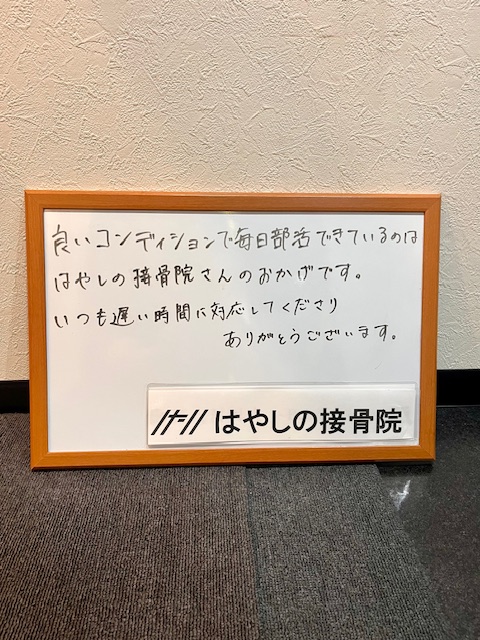 良いコンディションで毎日部活できているのは
はやしの接骨院さんのおかげです。
いつも遅い時間に対応してくださり
ありがとうございます。
はやしの接骨院